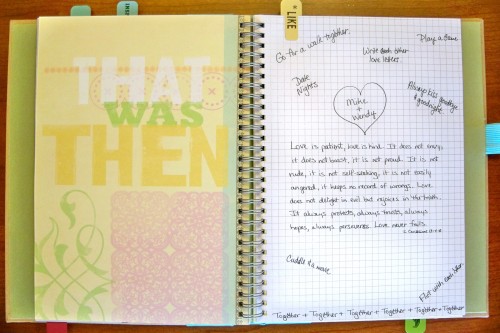 THAT
WAS
THEN
LIKE
Go for a walk together.
Write each other
love letters.
Play a Game
Date
Nights
Always kiss goodbye
& goodnight.
Mike
+
Wendy
Love is patient, love is kind. It does not envy,
it does not boast, it is not proud. It is not
rude, it is not self-seeking, it is not easily
angered, it keeps no record of wrongs. Love
does not delight in evil but rejoices in the truth.
It always protects, always trusts, always
hopes, always perseveres. Love never fails.
Cuddle & a movie
Flirt with each other.
Together + Together + Together + Together + Together